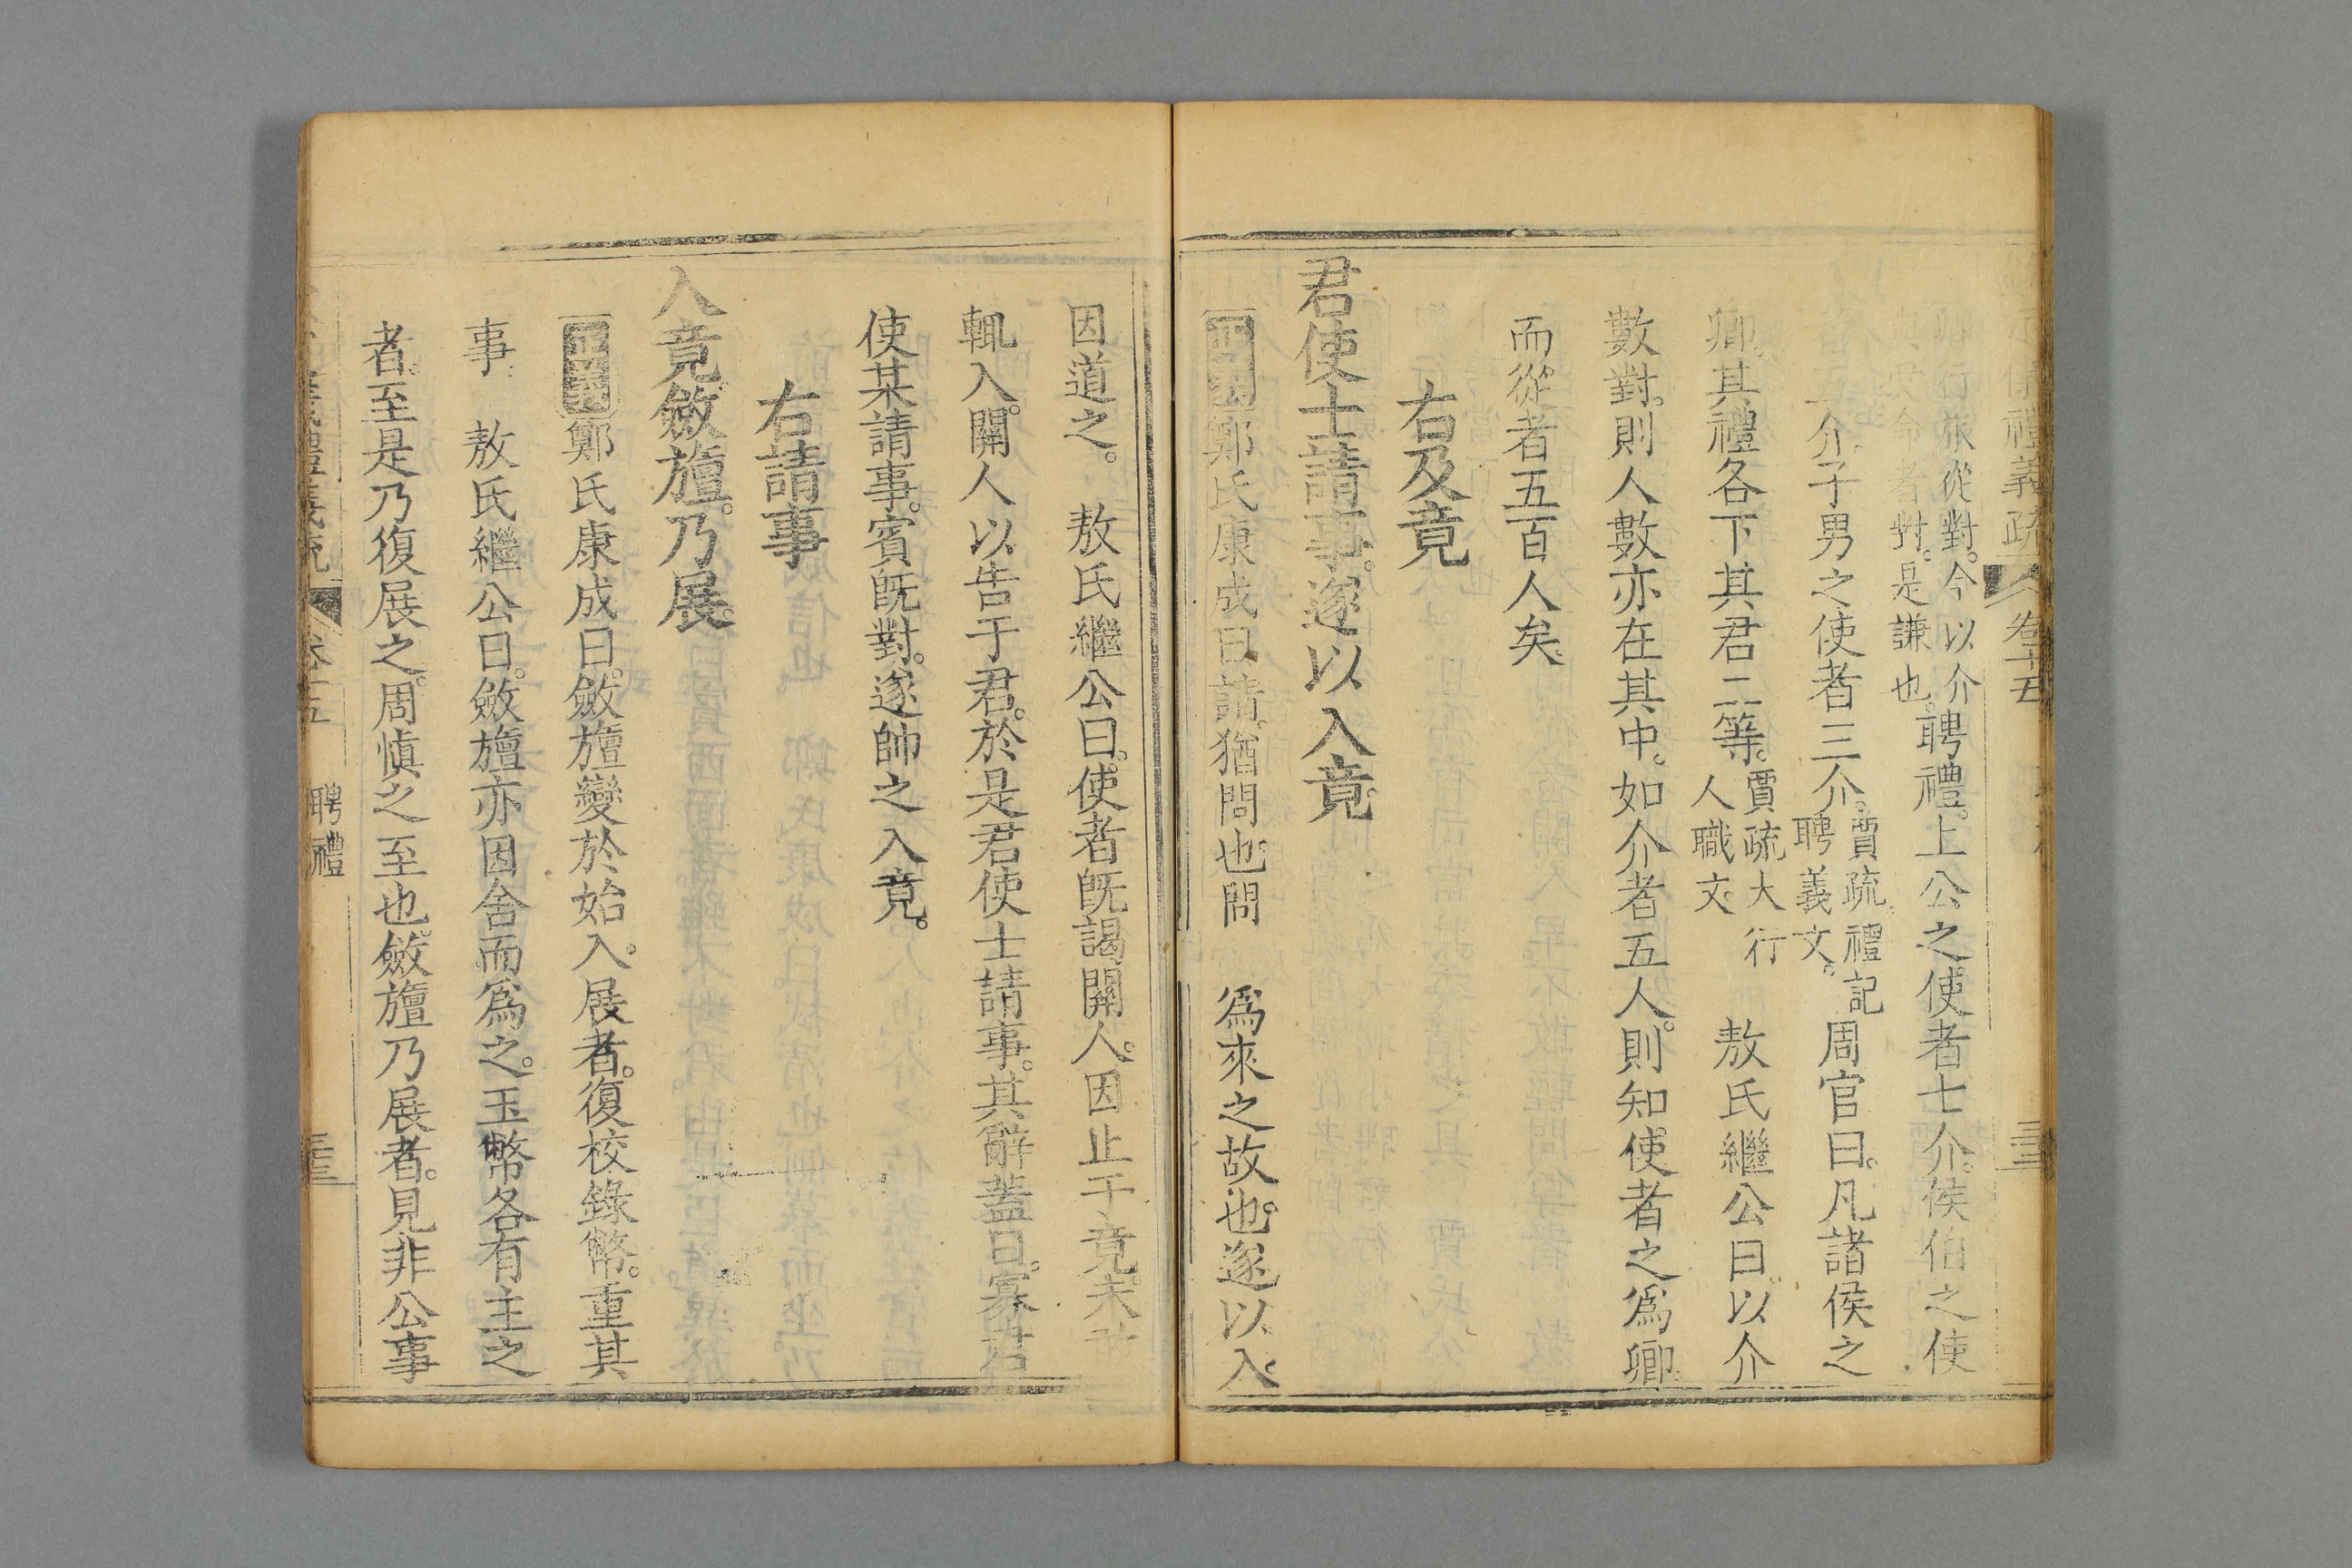 禮義疏 卷十五
行旅從對。今以介
命者對。是謙也。聘禮。上公之使者七介。侯伯之使
介。子男之使者三介。賈疏。禮記聘義文。周官曰。凡諸侯之
卿。其禮各下其君二等。賈疏大行人職文。敖氏繼公曰。以介
數對。則人數亦在其中。如介者五人。則知使者之爲卿。
而從者五百人矣。
右及竟
君使士請事。遂以入竟。
正義鄭氏康成曰。請。猶問也。問 爲來之故也。遂以入。
因道之。 敖氏繼公曰。使者旣謁關人。因止于竟。未
輒入。關人以告于君。於是君使士請事。其辭蓋曰。寡君
使某請事。賓旣對。遂帥之入竟。
右請事
入竟。斂旜。乃展。
正義鄭氏康成曰。斂旜變於始入。展者。復校錄幣。重其
事。 敖氏繼公曰。斂旜亦因舍而爲之。玉幣各有主之
者。至是乃復展之。周愼之至也。斂旜乃展者。見非公事
聘禮